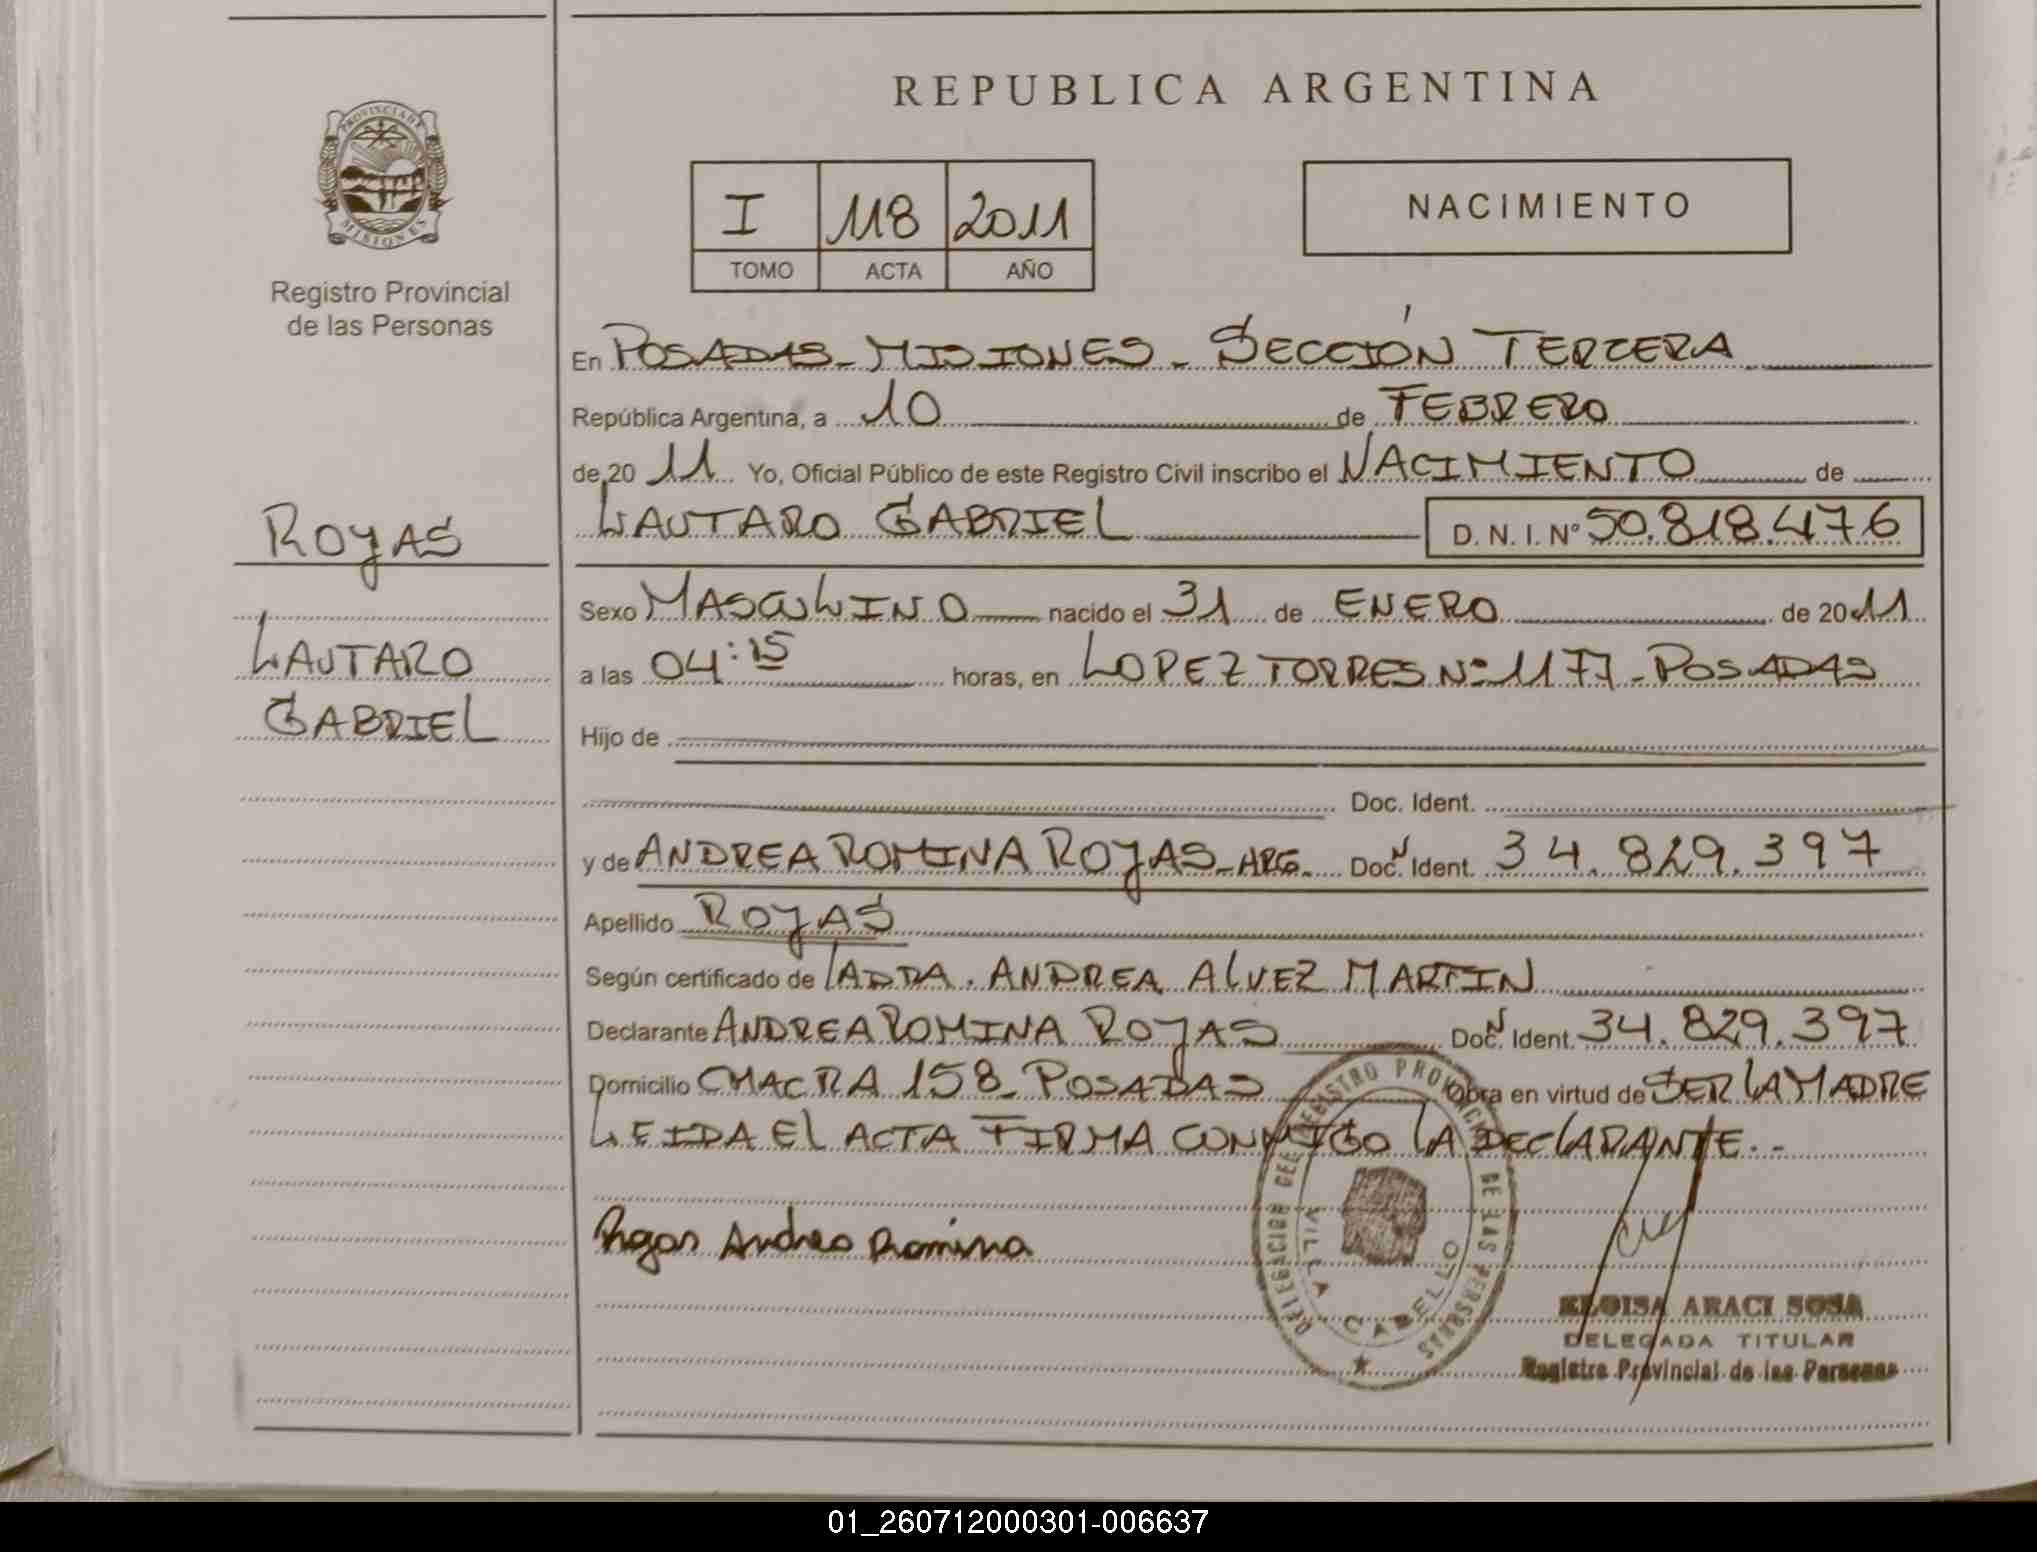 REPUBLICA ARGENTINA
PROVINCIA DE MISIONES
Registro Provincial
de las Personas
I 118 2011
TOMO ACTA AÑO
NACIMIENTO
En POSADAS - MISIONES - SECCIÓN TERCERA
República Argentina, a 10 de FEBRERO
de 20 11 Yo, Oficial Público de este Registro Civil inscribo el NACIMIENTO de
LAUTARO GABRIEL D. N. I. Nº 50.818.476
ROJAS
LAUTARO
GABRIEL
Sexo MASCULINO nacido el 31 de ENERO de 20 11
a las 04:15 horas, en LOPEZ TORRES Nº 1177 - POSADAS
Hijo de
Doc. Ident.
y de ANDREA ROMINA ROJAS - ARG. Doc. N Ident. 34.829.397
Apellido ROJAS
Según certificado de LADRA. ANDREA ALVEZ MARTIN
Declarante ANDREA ROMINA ROJAS Doc. N Ident. 34.829.397
Domicilio CHACRA 158 - POSADAS Obra en virtud de SER LA MADRE
LEIDA EL ACTA FIRMA CONMIGO LA DECLARANTE.-
Rojas Andrea Romina
DELEGACION DEL REGISTRO PROVINCIAL DE LAS PERSONAS
VILLA CABELLO
ELOISA ARACI SOSA
DELEGADA TITULAR
Registro Provincial de las Personas
01_260712000301-006637